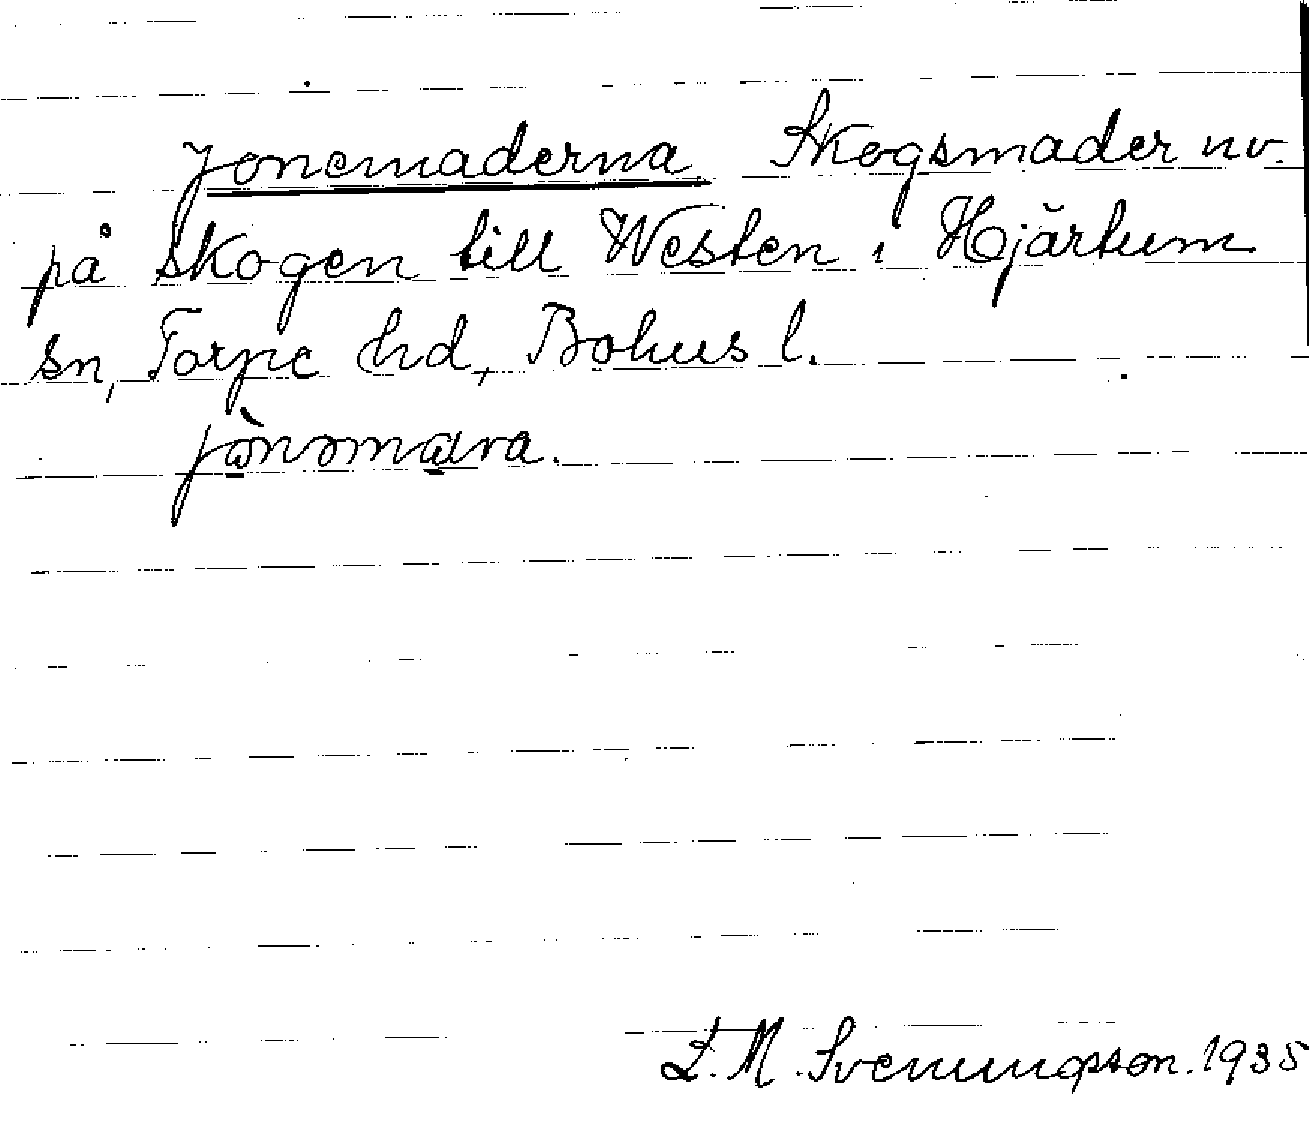 Jonemaderna Skogsmader nv.
på skogen till Westen i Hjärtum
sn, Torpe hd, Bohus l.
jònəmara.
L. M. Svenungsson. 1935